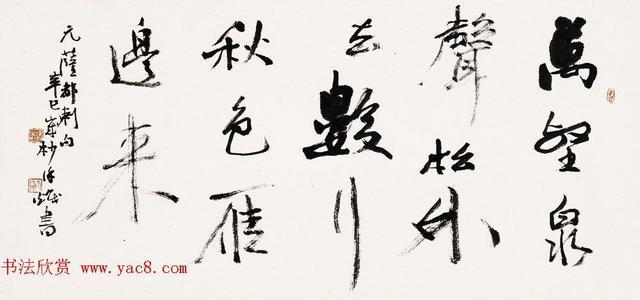 萬壑泉
聲松外
去數行
秋色雁
邊來
元薩都剌句
辛巳歲杪 書
书法欣赏 www.yac8.com